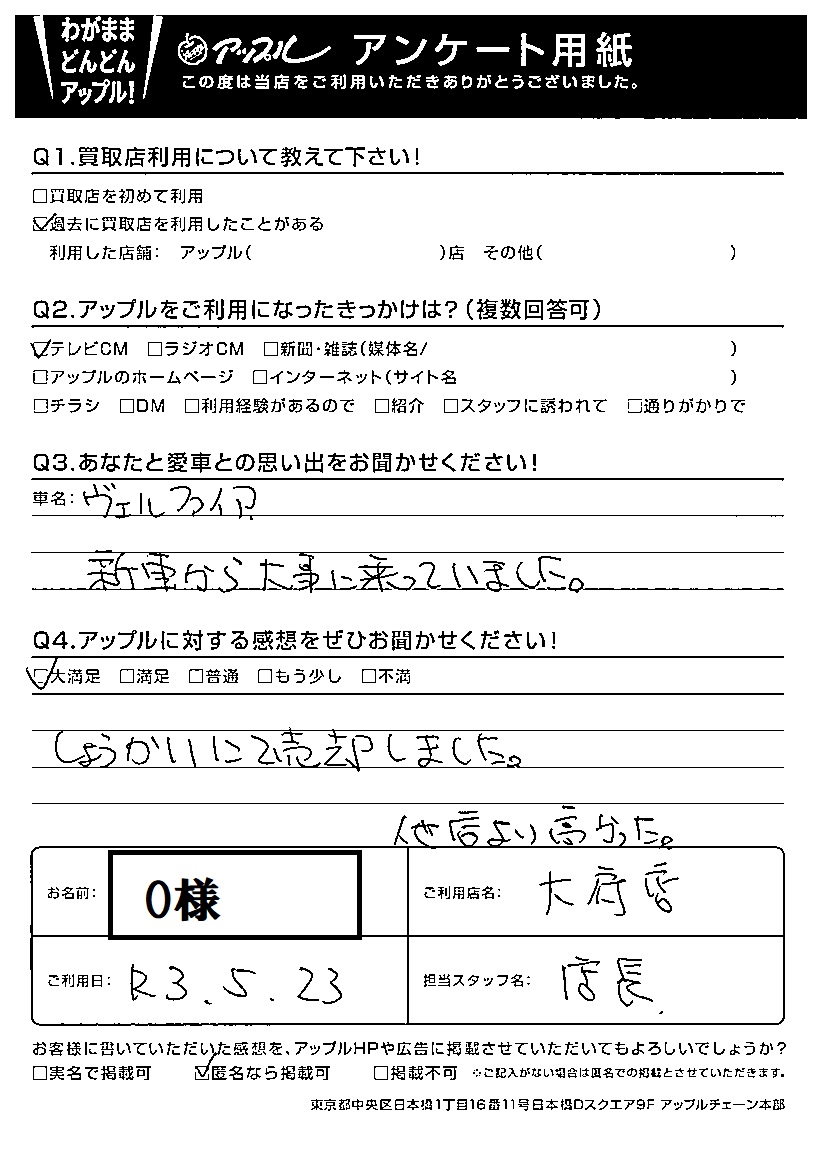 わがまま
どんどん
アップル!
アップル アンケート用紙
この度は当店をご利用いただきありがとうございました。
Q1.買取店利用について教えて下さい!
□買取店を初めて利用
☑過去に買取店を利用したことがある
利用した店舗: アップル( )店 その他( )
Q2.アップルをご利用になったきっかけは?(複数回答可)
☑テレビCM □ラジオCM □新聞・雑誌(媒体名/ )
□アップルのホームページ □インターネット(サイト名 )
□チラシ □DM □利用経験があるので □紹介 □スタッフに誘われて □通りがかりで
Q3.あなたと愛車との思い出をお聞かせください!
車名: ヴェルファイア
新車から大事に乗っていました。
Q4.アップルに対する感想をぜひお聞かせください!
☑大満足 □満足 □普通 □もう少し □不満
しょうかいにて売却しました。
他店より高かった。
お名前: O様
ご利用店名: 大府店
ご利用日: R3.5.23
担当スタッフ名: 店長
お客様に書いていただいた感想を、アップルHPや広告に掲載させていただいてもよろしいでしょうか?
□実名で掲載可 ☑匿名なら掲載可 □掲載不可 ※ご記入がない場合は匿名での掲載とさせていただきます。
東京都中央区日本橋1丁目16番11号日本橋Dスクエア9F アップルチェーン本部